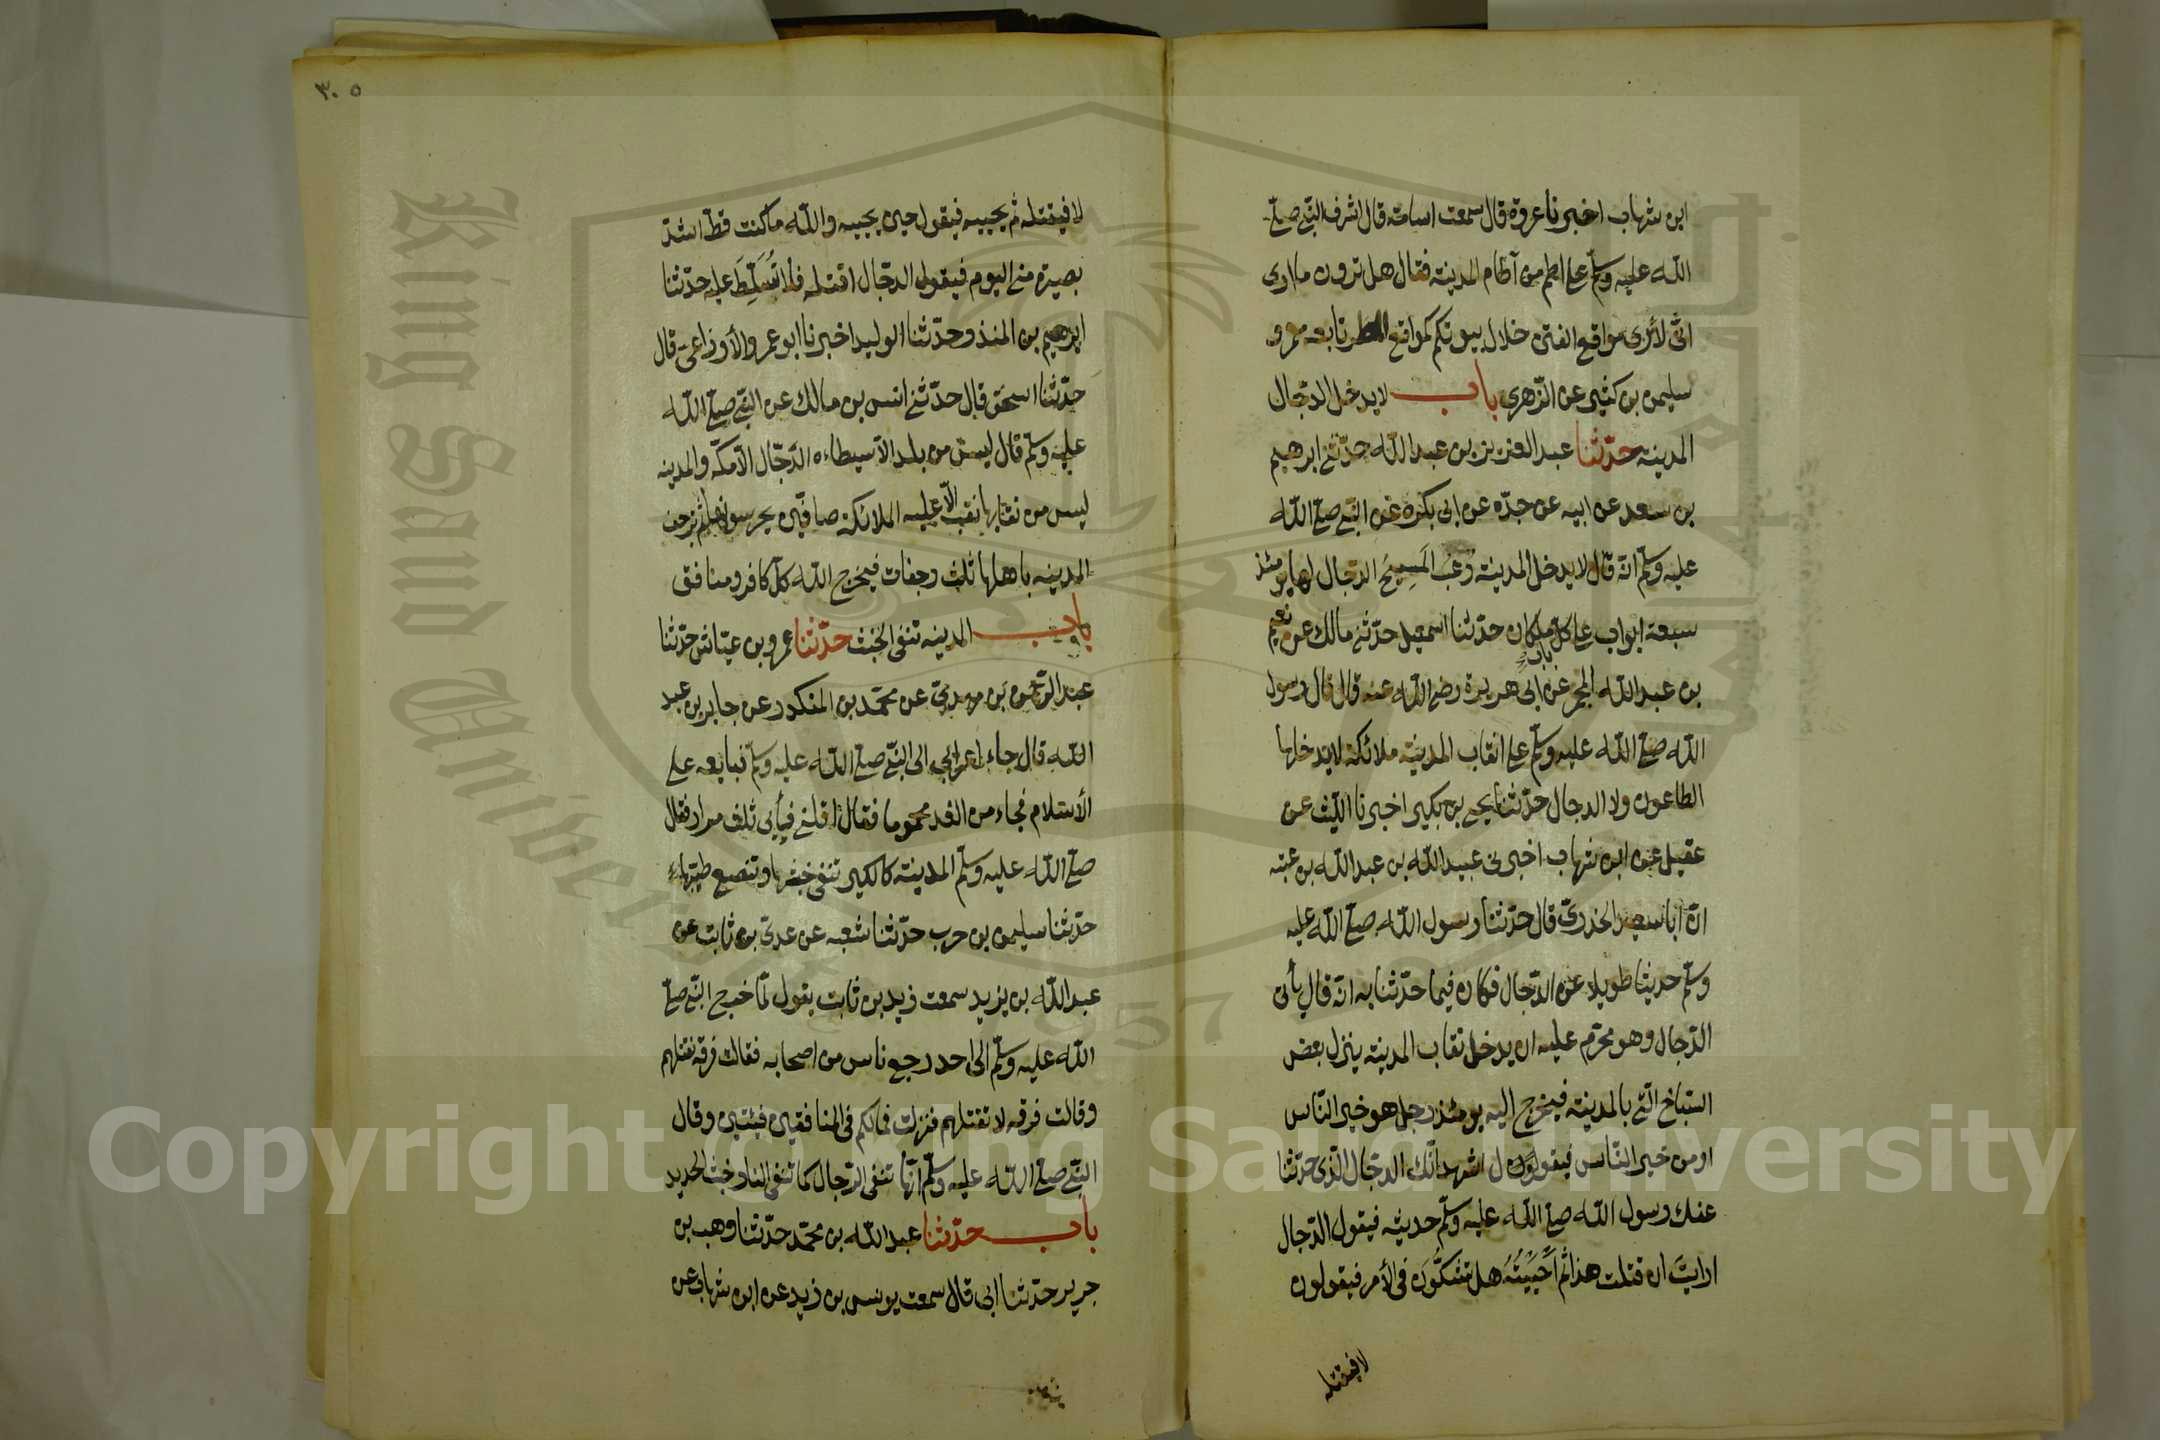 ابن شهاب اخبرنا عروة قال سمعت اسامة قال اشرف النبي صلى
الله عليه وسلم على اطم من آطام المدينة فقال هل ترون ما ارى
انّى لأرى مواقع الفتن خلال بيوتكم كمواقع القطر تابعه معمر و
سليمن بن كثير عن الزهرى باب لا يدخل الدجال
المدينة حدّثنا عبد العزيز بن عبد الله حدّثني ابرهيم
بن سعد عن ابيه عن جدّه عن ابى بكرة عن النبي صلى الله
عليه وسلم انّه قال لا يدخل المدينة رعب المسيح الدجال لها يومئذ
سبعة ابواب على كل باب ملكان حدّثنا اسمعيل حدّثني مالك عن نعيم
بن عبد الله المجمر عن ابى هريرة رضى الله عنه قال قال رسول
الله صلى الله عليه وسلم على انقاب المدينة ملائكة لا يدخلها
الطاعون ولا الدجال حدّثنا يحيى بن بكير اخبرنا الليث عن
عقيل عن ابن شهاب اخبرنى عبيد الله بن عبد الله بن عتبة
انّ ابا سعيد الخدرىّ قال حدّثنا رسول الله صلى الله عليه
وسلم حديثا طويلا عن الدجال فكان فيما حدّثنا به انّه قال يأتى
الدجال وهو محرّم عليه ان يدخل نقاب المدينة ينزل بعض
السباخ التى بالمدينة فيخرج اليه يومئذ رجل هو خير النّاس
او من خير النّاس فيقول اشهد انّك الدجال الذى حدّثنا
عنك رسول الله صلى الله عليه وسلم حديثه فيقول الدّجال
ارايت ان قتلت هذا ثم احييته هل تشكّون فى الأمر فيقولون
لا فيقتله
٣٠٥
لا فيقتله ثم يحييه فيقول حين يحييه والله ما كنت قطّ اشدّ
بصيرة منى اليوم فيقول الدجال اقتله فلا تُسَلَّطُ عليه حدّثنا
ابرهيم بن المنذر حدّثنا الوليد اخبرنا ابو عمرو الأوزاعىّ قال
حدّثنا اسحق قال حدّثني انس بن مالك عن النبي صلى الله
عليه وسلم قال ليس من بلد الّا سيطاءه الدجال الّا مكّة والمدينه
ليس من نقابها نقب الّا عليه الملائكة صافّين يحرسونها ثم ترجف
المدينه باهلها ثلث رجفات فيخرج الله كلّ كافر ومنافق
باب المدينه تنفى الخبث حدّثنا عمرو بن عبّاس حدّثنا
عبد الرحمن بن مهدىّ عن محمّد بن المنكدر عن جابر بن عبد
الله قال جاء اعرابى الى النبي صلى الله عليه وسلم فبايعه على
الأسلام فجاء من الغد محموما فقال اقلنى فيأبى ثلث مرار فقال
صلى الله عليه وسلم المدينة كالكير تنفى خبثها وتنصع طيبها
حدّثنا سليمن بن حرب حدّثنا شعبه عن عدىّ بن ثابت عن
عبد الله بن يزيد سمعت زيد بن ثابت يقول لمّا خرج النبي صلى
الله عليه وسلم الى احد رجع ناس من اصحابه فقالت فرقه نقتلهم
وقالت فرقه لا نقتلهم فنزلت فمالكم فى المنافقين فئتين وقال
النبي صلى الله عليه وسلم انّها تنفى الرّجال كما تنفى النار خبث الحديد
باب حدّثنا عبد الله بن محمّد حدّثنا وهب بن
جرير حدّثنا ابى قال سمعت يونس بن زيد عن ابن شهاب عن
King Saud University
1957
Copyright © King Saud University